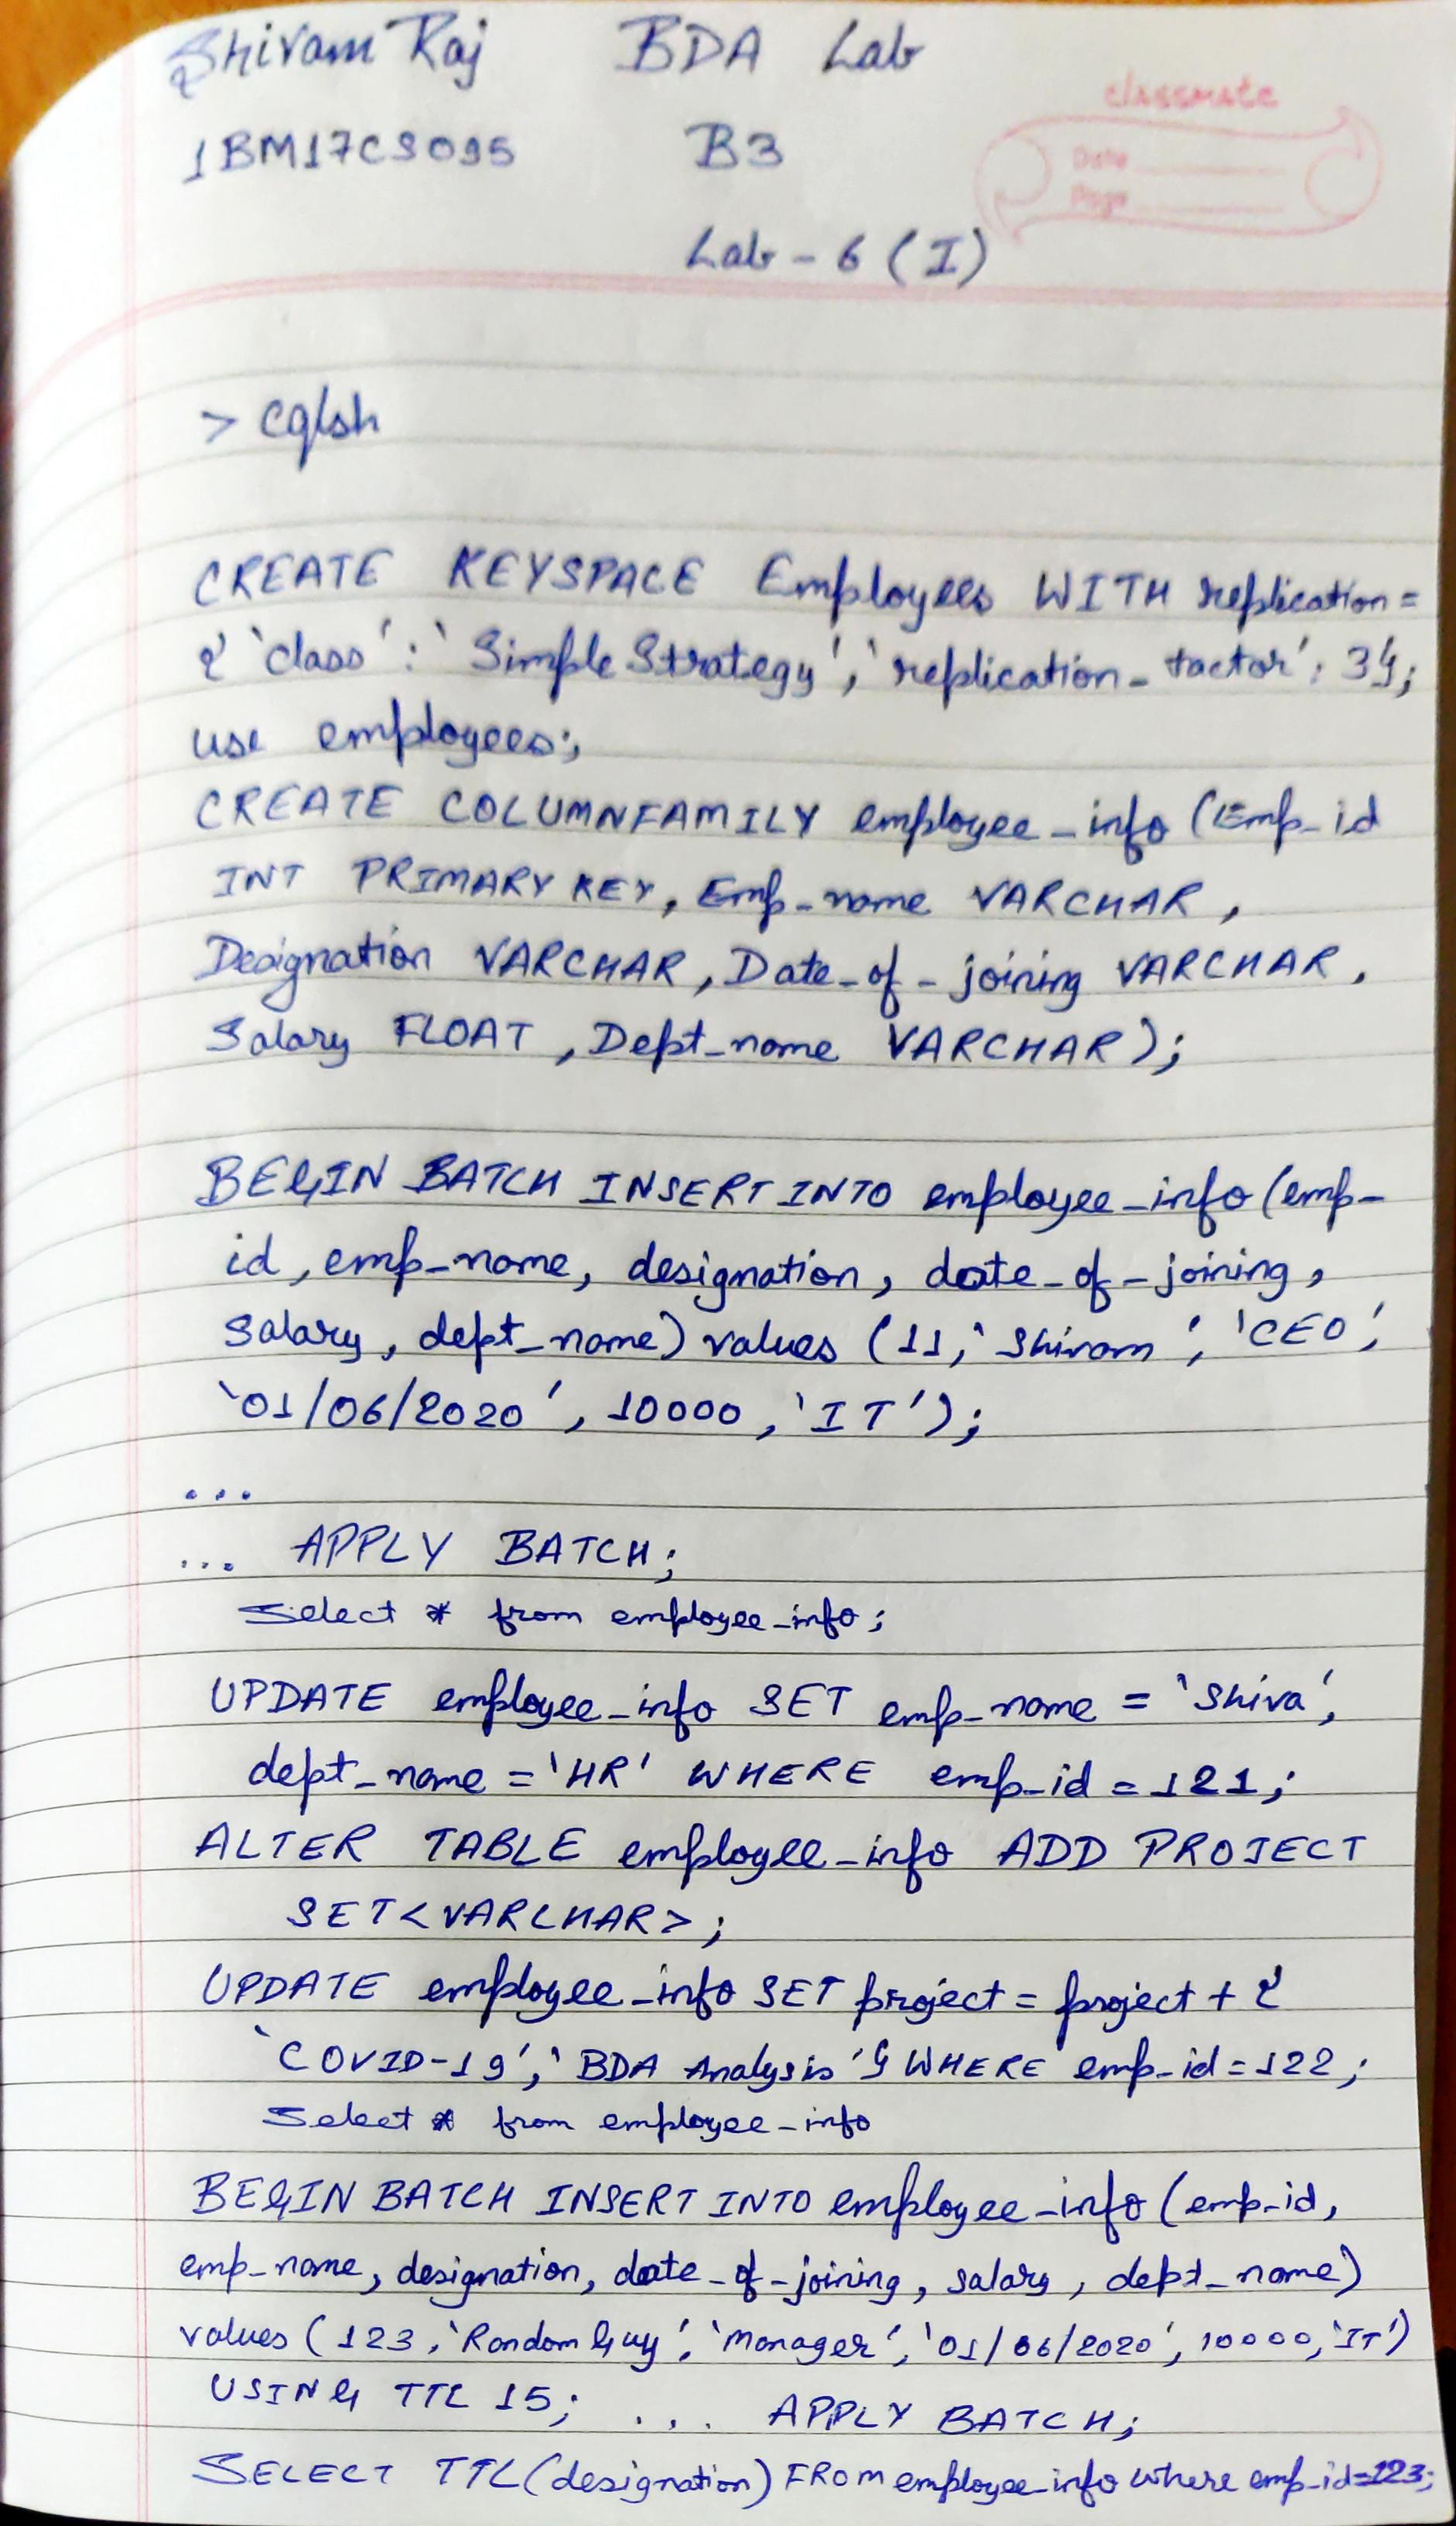 Shivam Raj BDA Lab
classmate
1BM17CS095 B3
Date
Page
Lab - 6 (I)
> cqlsh
CREATE KEYSPACE Employees WITH replication =
{ 'class' : 'SimpleStrategy', 'replication_factor' : 3};
use employees;
CREATE COLUMNFAMILY employee_info (Emp_id
INT PRIMARY KEY, Emp_name VARCHAR,
Designation VARCHAR, Date_of_joining VARCHAR,
Salary FLOAT, Dept_name VARCHAR);
BEGIN BATCH INSERT INTO employee_info (emp_
id, emp_name, designation, date_of_joining,
salary, dept_name) values (11, 'Shivam', 'CEO',
'01/06/2020', 10000, 'IT');
...
... APPLY BATCH;
Select * from employee_info;
UPDATE employee_info SET emp_name = 'Shiva',
dept_name = 'HR' WHERE emp_id = 121;
ALTER TABLE employee_info ADD PROJECT
SET<VARCHAR>;
UPDATE employee_info SET project = project + {
'COVID-19', 'BDA Analysis'} WHERE emp_id = 122;
Select * from employee_info
BEGIN BATCH INSERT INTO employee_info (emp_id,
emp_name, designation, date_of_joining, salary, dept_name)
values (123, 'Random Guy', 'Manager', '01/06/2020', 10000, 'IT')
USING TTL 15; ... APPLY BATCH;
SELECT TTL(designation) FROM employee_info where emp_id=123;